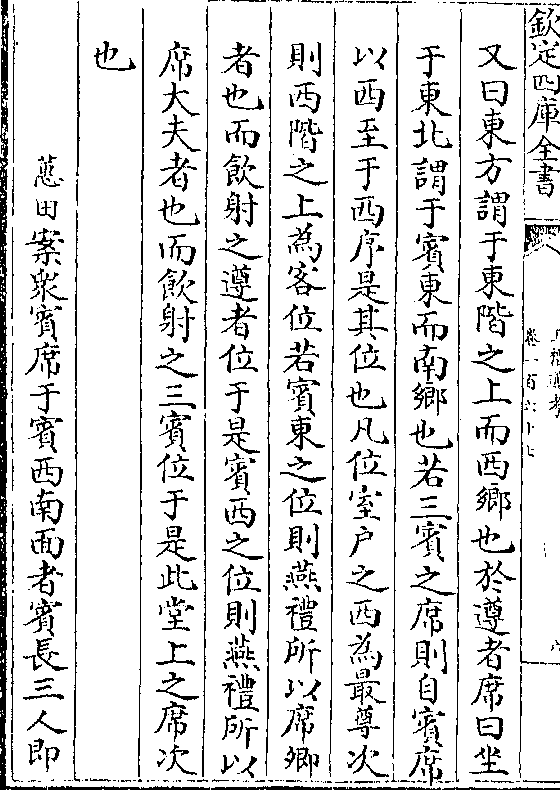 欽定四庫全書
卷一百六十七
又曰東方謂于東階之上而西鄉也於遵者席曰坐
于東北謂于賓東而南鄉也若三賓之席則自賓席
以西至于西序是其位也凡位室户之西為最尊次
則西階之上為客位若賓東之位則燕禮所以席卿
者也而飲射之遵者位于是賓西之位則燕禮所以
席大夫者也而飲射之三賓位于是此堂上之席次
也
蕙田案衆賓席于賓西南面者賓長三人即